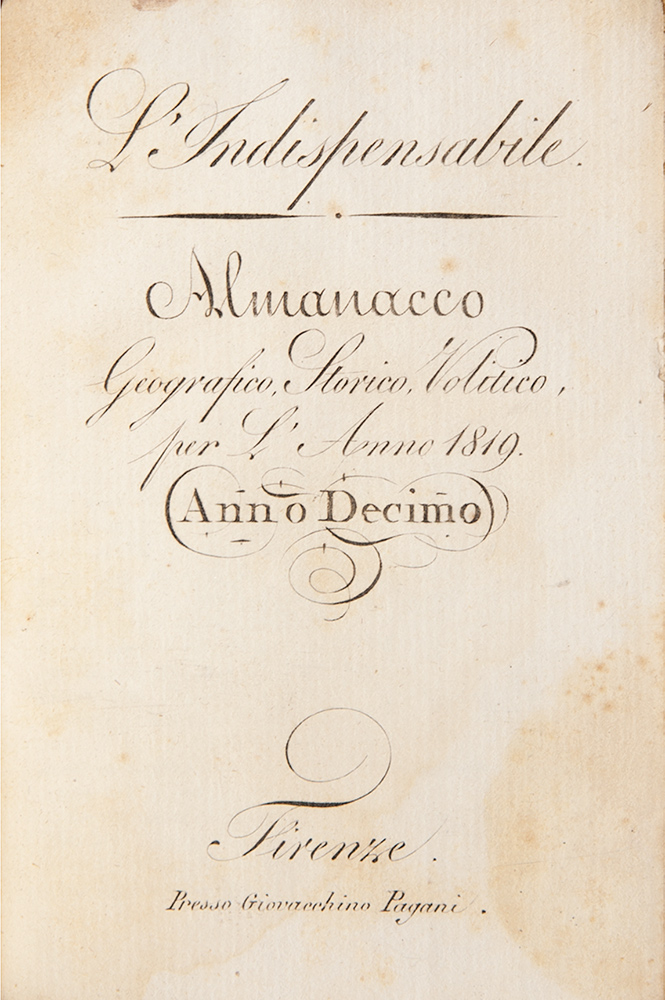 L'Indispensabile.
Almanacco
Geografico, Storico, Politico,
per L' Anno 1819.
Anno Decimo
Firenze.
Presso Giovacchino Pagani.